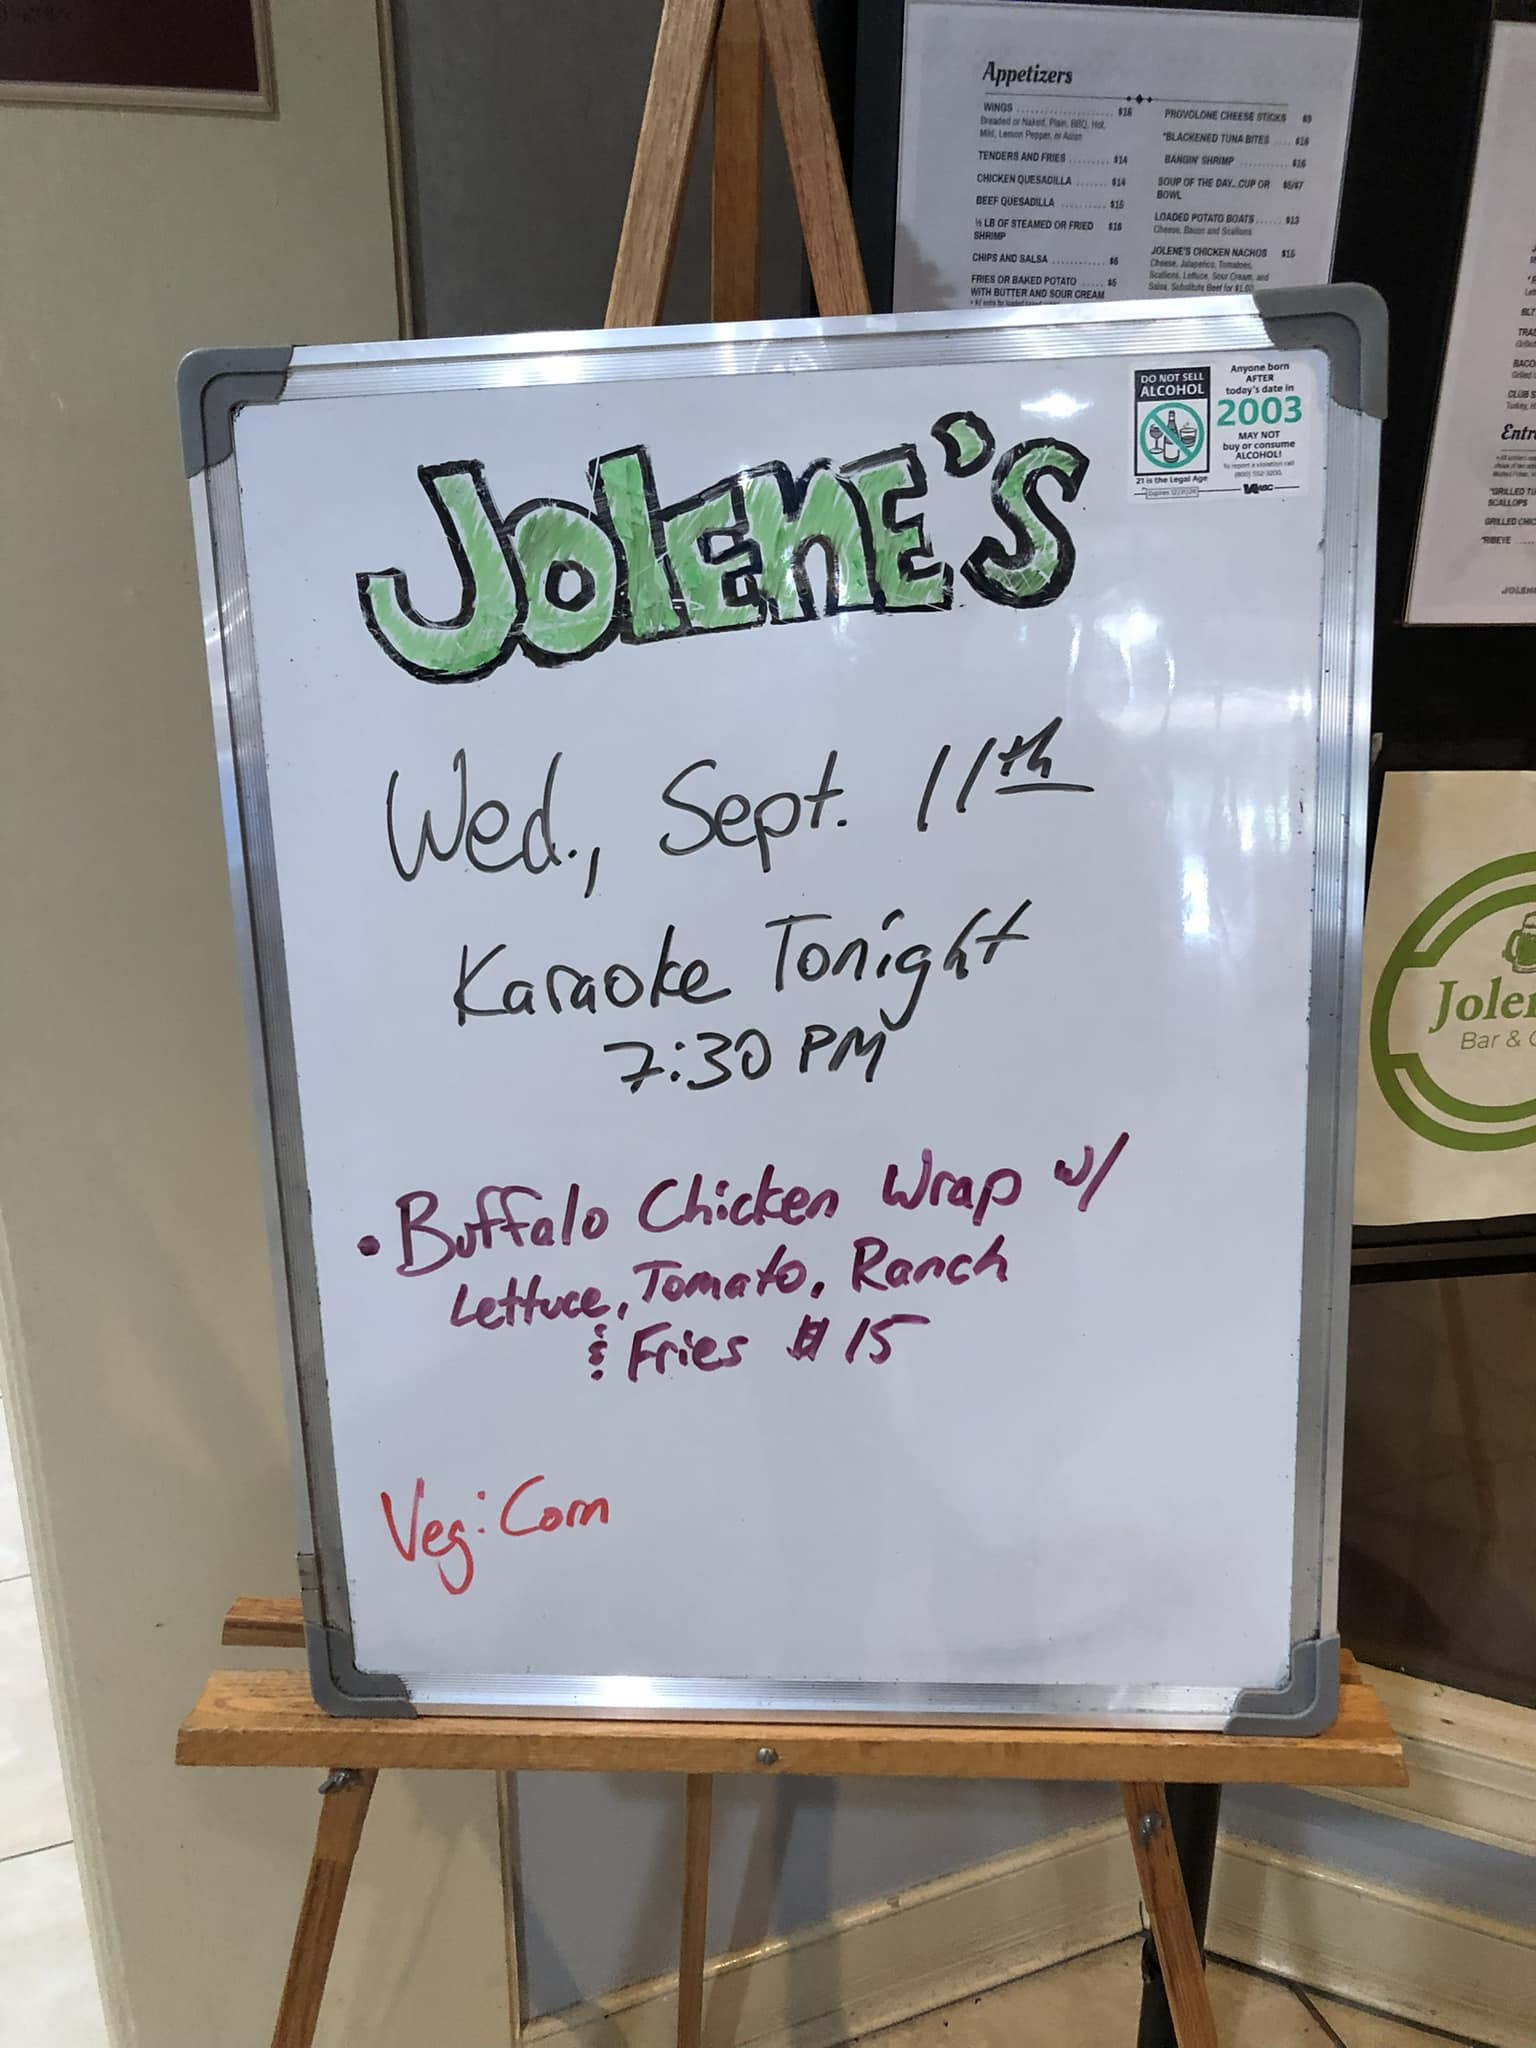 Appetizers
WINGS .................... $16
Breaded or Naked, Plain, BBQ, Hot,
Mild, Lemon Pepper, or Asian
TENDERS AND FRIES ......... $14
CHICKEN QUESADILLA ....... $14
BEEF QUESADILLA .......... $15
½ LB OF STEAMED OR FRIED $16
SHRIMP
CHIPS AND SALSA ............ $6
FRIES OR BAKED POTATO ..... $5
WITH BUTTER AND SOUR CREAM
PROVOLONE CHEESE STICKS $9
*BLACKENED TUNA BITES .... $16
BANGIN' SHRIMP ............ $16
SOUP OF THE DAY...CUP OR $5/$7
BOWL
LOADED POTATO BOATS ...... $13
Cheese, Bacon and Scallions
JOLENE'S CHICKEN NACHOS $15
Cheese, Jalapeños, Tomatoes,
Scallions, Lettuce, Sour Cream, and
Salsa, Substitute Beef for $1.00
DO NOT SELL
ALCOHOL
21 is the Legal Age
Expires 12/31/24
Anyone born
AFTER
today's date in
2003
MAY NOT
buy or consume
ALCOHOL!
To report a violation call
(800) 552-3200.
ABC
JOLENE'S
Wed., Sept. 11th
Karaoke Tonight
7:30 PM
• Buffalo Chicken Wrap w/
Lettuce, Tomato, Ranch
& Fries $15
Veg: Corn
CLUB S
Turkey, H
Entr
SCALLOPS
GRILLED CHIC
*RIBEYE
Jolen
Bar &